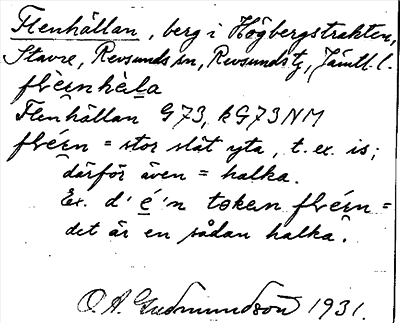 Flenhällan, berg i Högbergstrakten,
Stavre, Revsunds sn, Revsunds tg, Jämtl. l.
flèenhèla
Flenhällan G73, kG73NM
fléen = stor slät yta, t. ex. is;
därför även = halka.
Ex. d' e'n token fléen =
det är en sådan halka.
O. A. Gudmundson 1931.